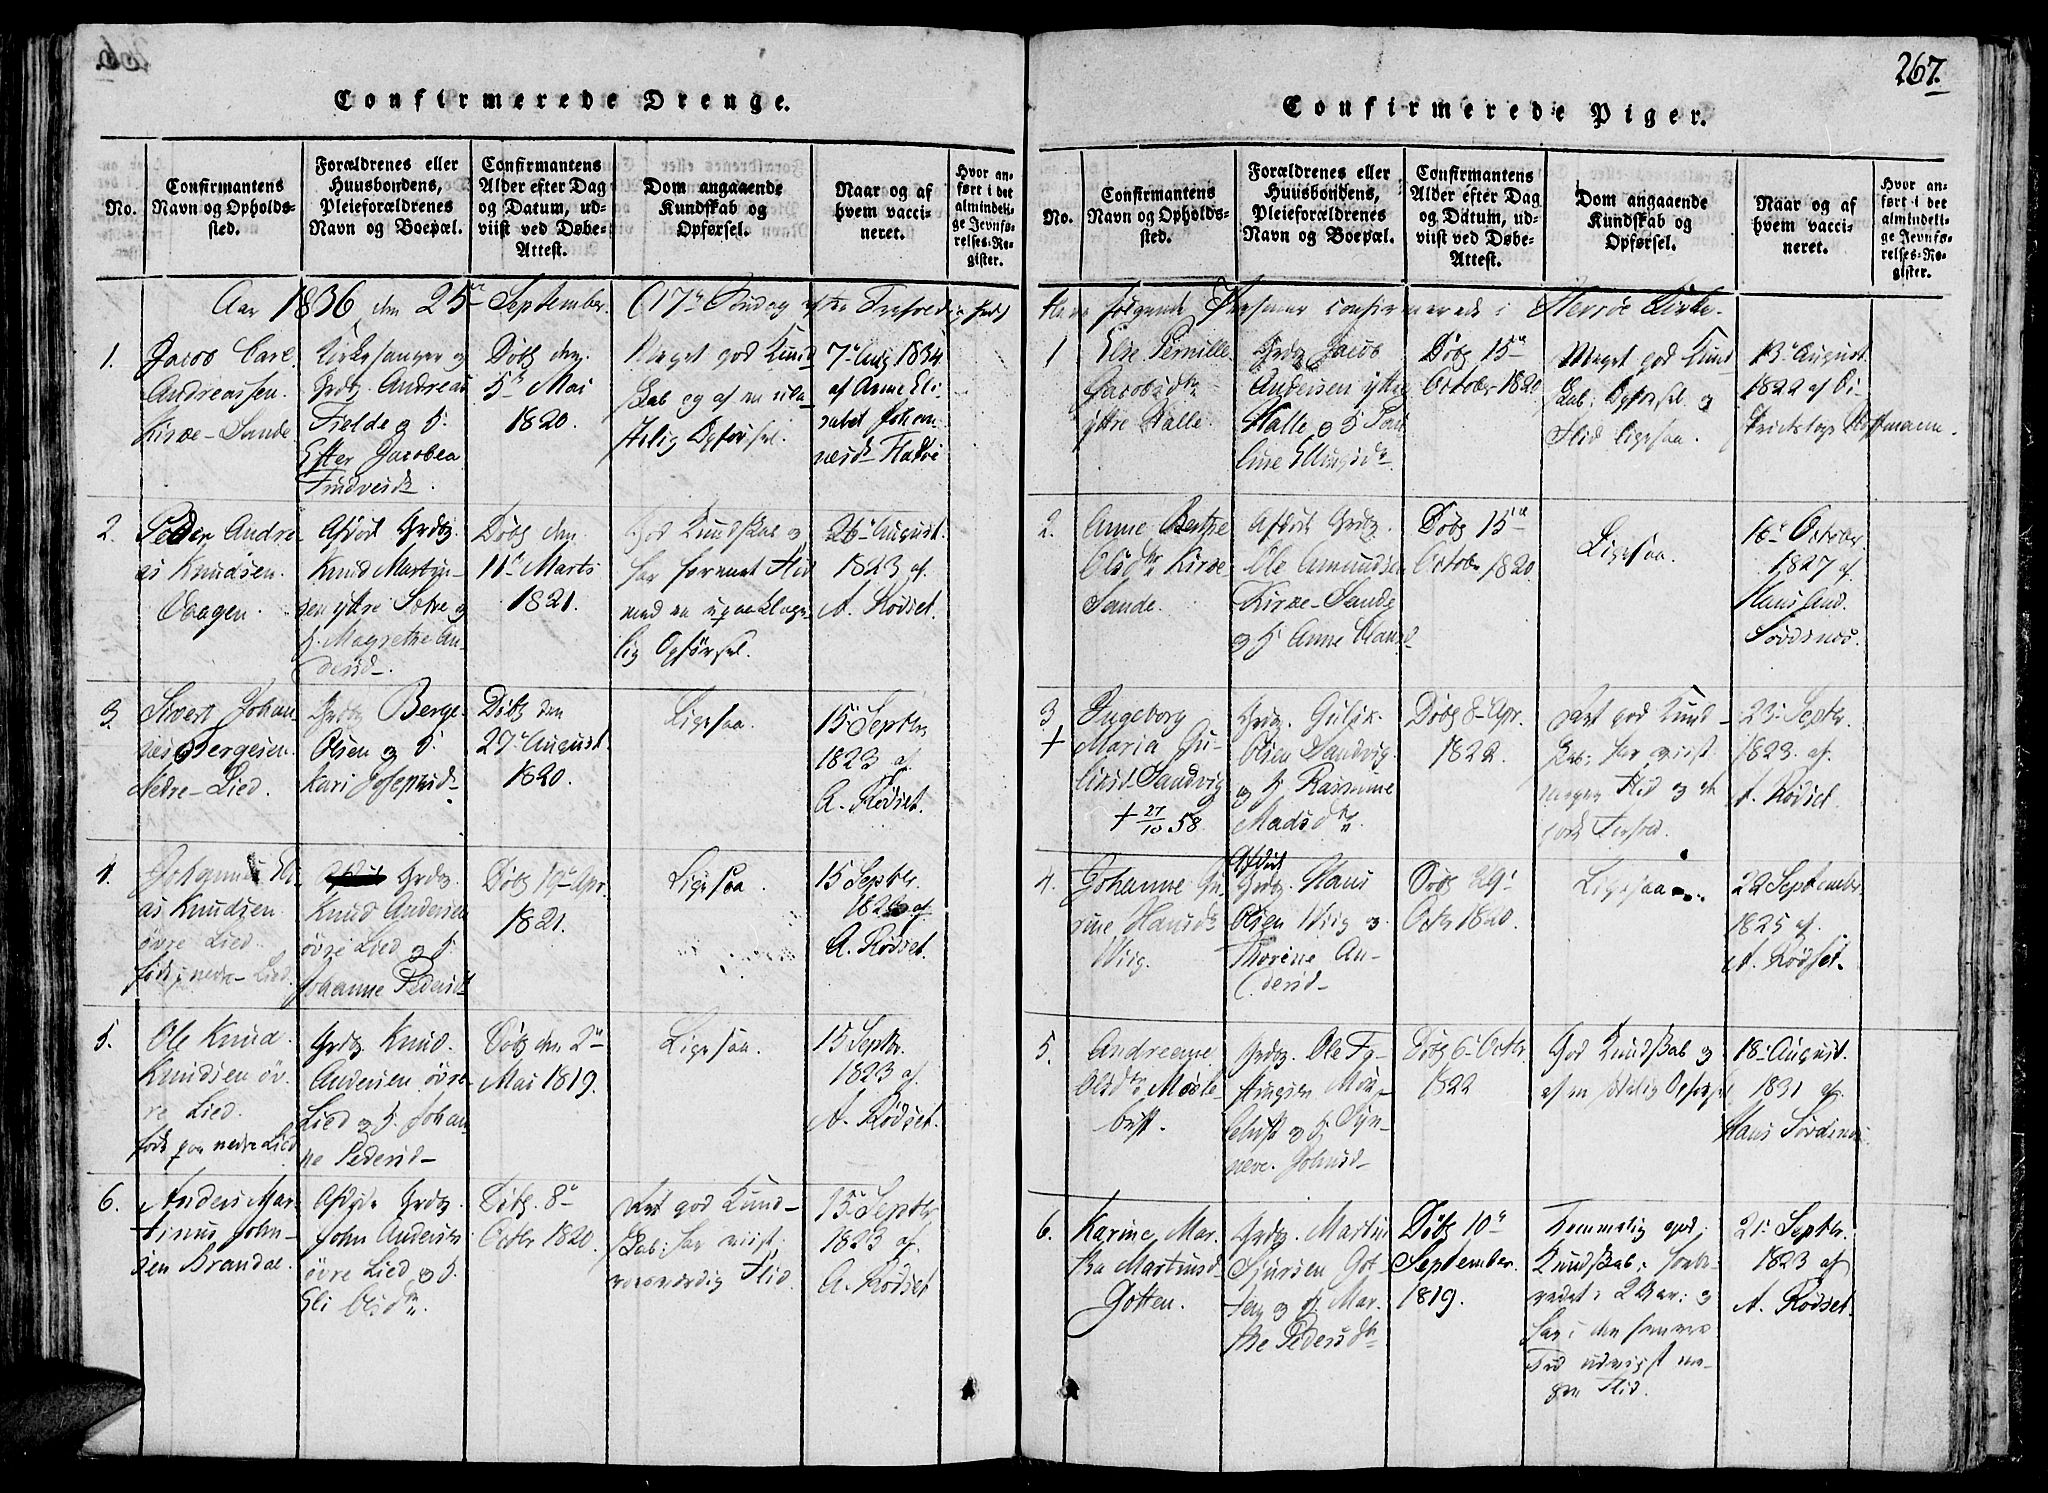 267.
Confirmerede Drenge.
No.
Confirmantens
Navn og Opholds-
sted.
Forældrenes eller
Huusbondens,
Pleieforældrenes
Navn og Boepæl.
Confirmantens
Alder efter Dag
og Datum, ud-
viist ved Døbe-
Attest.
Dom angaaende
Kundskab og
Opførsel.
Naar og af
hvem vacci-
neret.
Hvor an-
ført i det
almindeli-
ge Jevnfø-
relses-Re-
gister.
Aar 1836 den 25de September (17de Søndag efter Trefoldigheds)
1.
Jacob Carl
Andreassen
Kirke-Sande
Kirkesanger og
Grdbr. Andreas
Fielde og H.
Ester Jacobea
Døbt den
5te Mai
1820.
Meget god Kund
skab og af en
Opførsel.
7de Aug 1834
af Anne Eli
sabet Johan
nesdr Flatøe
2.
Peder Andre
as Knudsen
Vaagen.
Afdød Grdbr.
Knud Martin-
sen yttre
og
H. Magrethe An-
dersd.
Døbt den
11te Marts
1821.
God Kundskab og
har forenet Flid
med en upaaklage
lig Opførsel.
26de August
1823 af
A. Rødset.
3
Sivert Johan
nes Bergesen
Nedre-Lied.
Grdbr. Berge
Olsen og H.
Kari Josephsd.
Døbt den
27de August
1820.
Ligesaa.
15de Septbr
1823 af
A. Rødset.
4.
Johannes
as Knudsen
øvre Lied
født i nedre Lied.
Grdbr.
Knud Andersen
øvre Lied og H.
Johanne Pedersdr
Døbt 19de Apr.
1821.
Ligesaa.
15 Septbr.
1823 af
A. Rødset.
5.
Ole Knud
Knudsen øv-
re Lied.
født paa nedre Lied
Grdbr. Knud
Andersen øvre
Lied og H. Johan-
ne Pedersd.
Døbt den 2den
Mai 1819.
Ligesaa.
15 Septbr.
1823 af
A. Rødset.
6.
Anders Mar-
tinus John-
sen Brandal.
Afdøde Grdbr.
John Andersen
øvre Lied og H.
Eli Olsdtr.
Døbt 8de
Octbr 1820.
god Kund-
skab; har viist
roesværdig Flid.
15de Septbr
1823 af
A. Rødset
Confirmerede Piger.
No.
Confirmantens
Navn og Opholds-
sted.
Forældrenes eller
Huusbondens,
Pleieforældrenes
Navn og Boepæl.
Confirmantens
Alder efter Dag
og Datum, ud-
viist ved Døbe-
Attest.
Dom angaaende
Kundskab og
Opførsel.
Naar og af
hvem vacci-
neret.
Hvor an-
ført i det
almindeli-
ge Jevnfø-
relses-Re-
gister.
følgende Personer confirmerede i Herrøe Kirke.
1
Else Pernille
Jacobsdtr
yttre Halle.
Grdbr Jacob
Andersen yttre
Halle og H
line Ellingsdtr
Døbt 15de
October 1820
Meget god Kund
skab; Opførsel og
Flid ligesaa.
13de August
1822 af Di
striktslæge Hoffmann.
2.
Anne Berthe
Olsdtr Kirke
Sande.
Afdøde Grdbr.
Ole Amundsen
Kirke-Sande
og H Anne Hansd
Døbt 15de
October 1820
Ligesaa
16de October
1827 af
Hans
3
+
Ingeborg
Maria Gu-
Sandvig
+ 27/10 58.
Grdbr.
Olsen Sandvig
og H Rasmine
Madsdtr
Døbt 8de Apr.
1822.
god Kund-
skab; har viist
megen Flid og et
godt Forhold.
23de Septbr.
1823 af
A. Rødset.
4.
Johanne Gu-
rine Hansdr
Wiig.
Afdød
Grdbr. Hans
Olsen Wiig og
An-
dersd.
Døbt 29de
Octbr 1820.
Ligesaa
22 September
1825 af
A. Rødset.
5.
Andreane
Olsdtr Møkle-
bust.
Grdbr. Ole
bust og H Syn-
neve Johnsd.
Døbt 6te Octbr
1822
God Kundskab og
af en
18de August
1831 af
Hans
6.
Karine Mar-
tha Martinusd
Gjøtten.
Grdbr. Martin
Sjursen
og H Mar-
the Pedersdtr
Døbt 10de
September
1819.
Temmelig god
Kundskab;
2 Aar; og
har i den
Tid udviist me-
gen Flid.
21de Septbr.
1823 af
A. Rødset.